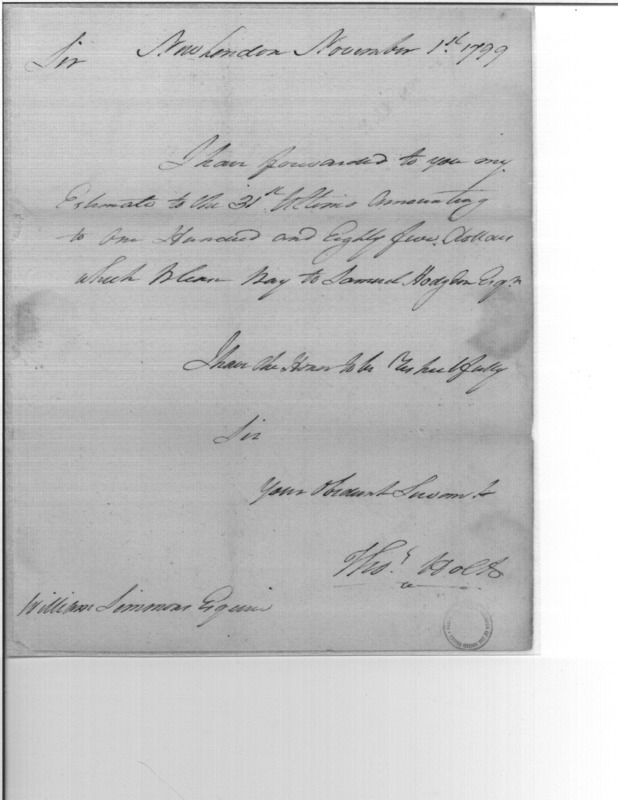 Sir New London November 1st 1799
I have forwarded to you my
Estimate to the 31st Ultimo Amounting
to One Hundred and Eighty five dollars
which Please Pay to Samuel Hodgdon Esqr
I have the Honor to be Respectfully
Sir
Your Obedient Servant
Thos Holt
William Simmons Esquire